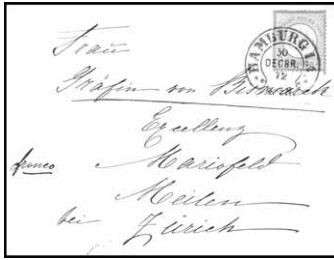 Frau
HAMBURG I.
30
DECBR.
72
Gräfin von Bismarck
Excellenz
franco
Mariafeld
Meilen
bei
Zürich